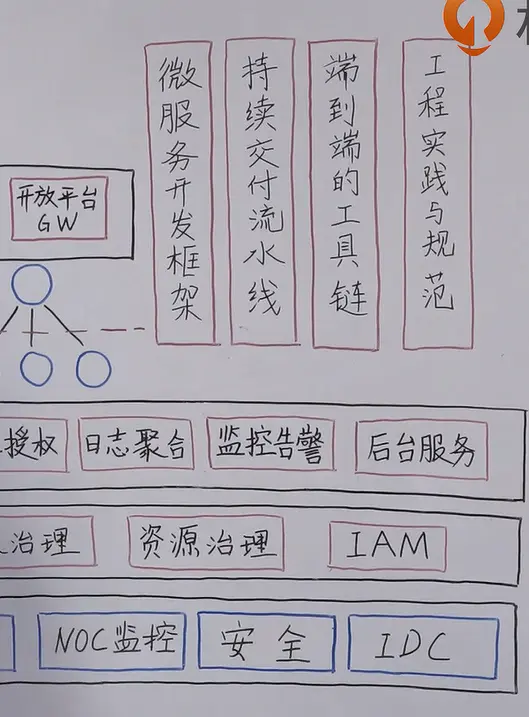 微服务开发框架
持续交付流水线
端到端的工具链
工程实践与规范
开放平台
GW
授权
日志聚合
监控告警
后台服务
治理
资源治理
IAM
NOC监控
安全
IDC